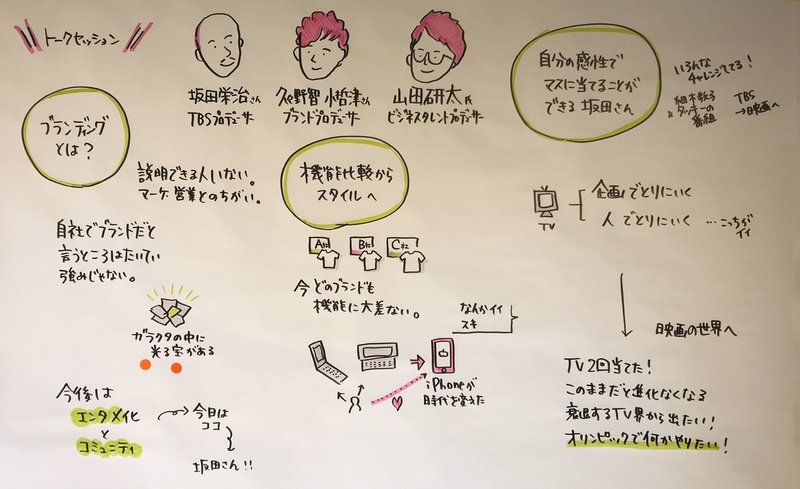 トークセッション
坂田栄治さん
TBSプロデューサー
久野智 小哲津さん
ブランドプロデューサー
山田研太氏
ビジネスタレントプロデューサー
自分の感性で
マスに当てることが
できる 坂田さん
いろんな
チャレンジしてる!
細木数子
& タッキーの
番組
TBS
→映画へ
ブランディング
とは?
説明できる人いない。
マーケ・営業とのちがい。
自社でブランドだと
言うところはたいてい
強みじゃない。
ガラクタの中に
光る宝がある
今後は
エンタメイ化
と
コミュニティ
今日は
ココ
坂田さん!!
機能比較から
スタイルへ
A社
B社
C社
今どのブランドも
機能に大差ない。
なんかイイ
スキ
iPhoneが
時代を変えた
TV
企画でとりにいく
人でとりにいく …こっちが
イイ
映画の世界へ
TV2回当てた!
このままだと進化なくなる
衰退するTV界から出たい!
オリンピックで何かやりたい!